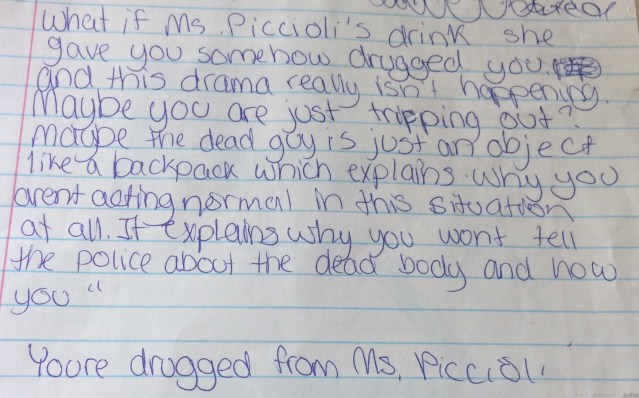 What if Ms. Piccioli's drink she
gave you somehow drugged you.
and this drama really isn't happening.
Maybe you are just tripping out?
Maybe the dead guy is just an object
like a backpack which explains why you
arent acting normal in this situation
at all. It explains why you wont tell
the police about the dead body and how
you "
Youre drugged from Ms. Piccioli